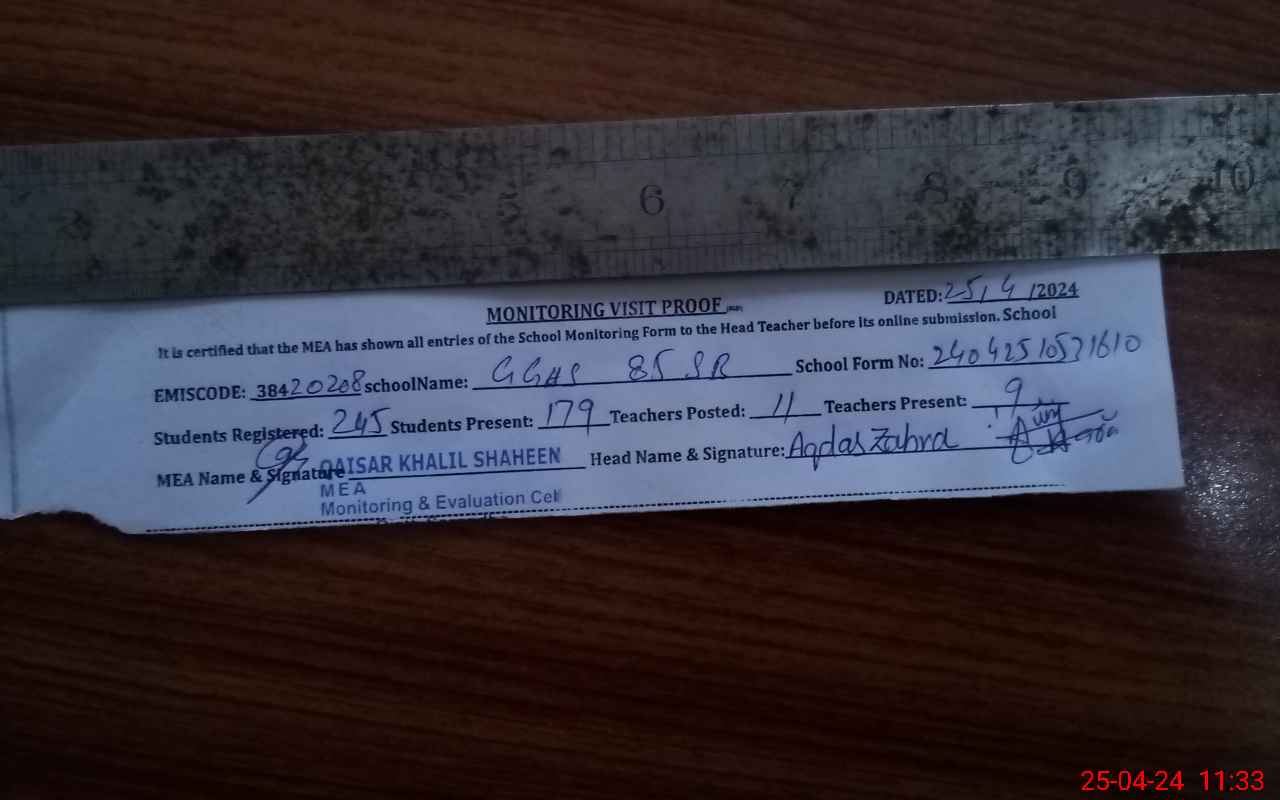 3 5 6 7 8 9 10
MONITORING VISIT PROOF
DATED: 25/4/2024
It is certified that the MEA has shown all entries of the School Monitoring Form to the Head Teacher before its online submission. School
EMISCODE: 38420208 schoolName: GGHS 85 SR School Form No: 24042510531610
Students Registered: 245 Students Present: 179 Teachers Posted: 11 Teachers Present: 9
MEA Name & Signature QAISAR KHALIL SHAHEEN Head Name & Signature: Aqdas Zahra
MEA
Monitoring & Evaluation Cell
25-04-24 11:33